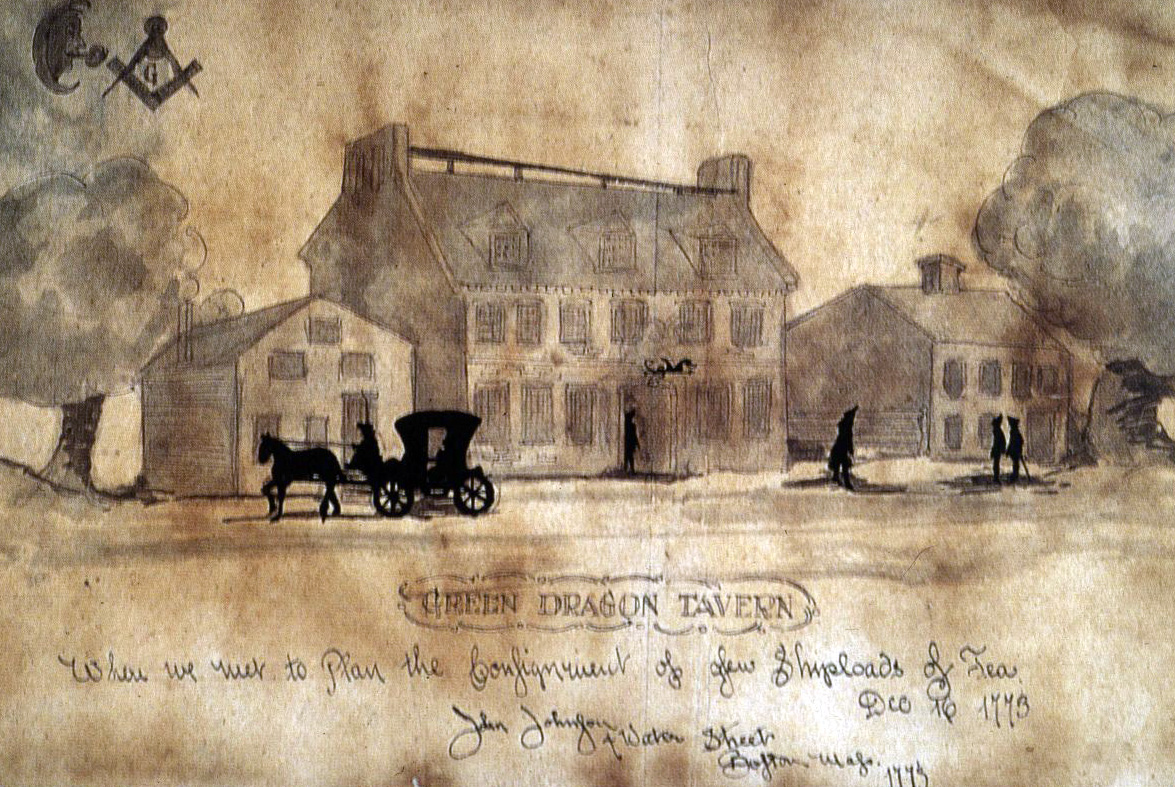 G
GREEN DRAGON TAVERN
When we met to Plan the Consignment of a few Shiploads of Tea
Dec 16 1773
John Johnson
4 Water Street
Boston Mass. 1773